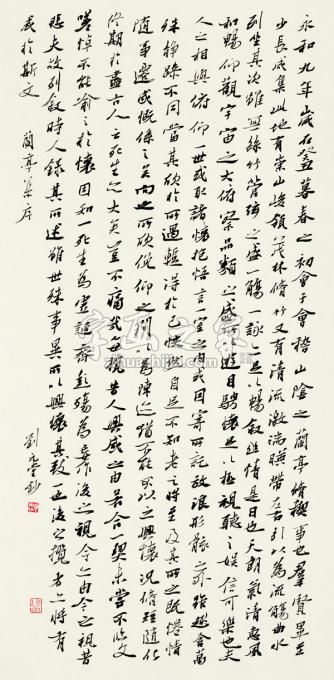 永和九年歲在癸丑暮春之初會于會稽山陰之蘭亭脩禊事也羣賢畢至
少長咸集此地有崇山峻領茂林脩竹又有清流激湍暎帶左右引以為流觴曲水
列坐其次雖無絲竹管弦之盛一觴一詠亦足以暢敘幽情是日也天朗氣清惠風
和暢仰觀宇宙之大俯察品類之盛所以遊目騁懷足以極視聽之娛信可樂也夫
人之相與俯仰一世或取諸懷抱悟言一室之內或因寄所託放浪形骸之外雖趣舍萬
殊靜躁不同當其欣於所遇暫得於己快然自足不知老之將至及其所之既惓情
隨事遷感慨係之矣向之所欣俛仰之間以為陳迹猶不能不以之興懷況脩短隨化
終期於盡古人云死生亦大矣豈不痛哉每攬昔人興感之由若合一契未嘗不臨文
嗟悼不能喻之於懷固知一死生為虛誕齊彭殤為妄作後之視今亦由今之視昔
悲夫故列敘時人錄其所述雖世殊事異所以興懷其致一也後之攬者亦將有
感於斯文 蘭亭集序
劉元堂鈔
字画之家